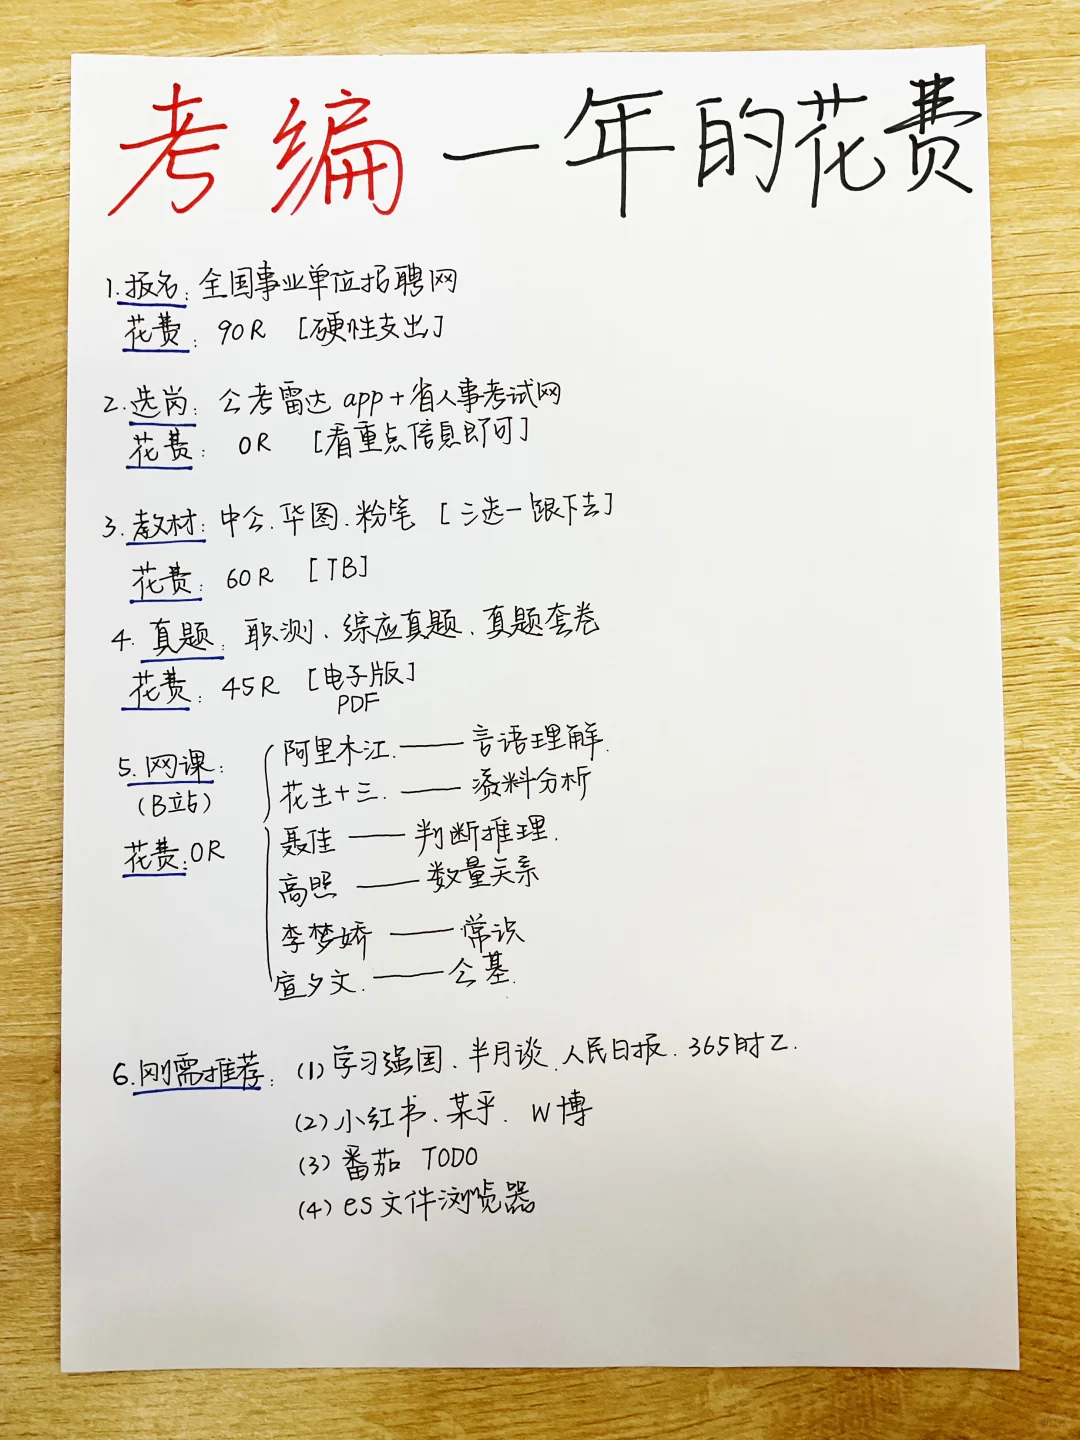 考编一年的花费
1.报名：全国事业单位招聘网
花费：90R [硬性支出]
2.选岗：公考雷达app+省人事考试网
花费：0R [看重点信息即可]
3.教材：中公、华图、粉笔[三选一跟下去]
花费：60R [TB]
4.真题：职测、综应真题、真题套卷
花费：45R [电子版]
PDF
5.网课：
（B站）
花费：0R
阿里木江.——言语理解.
花生十三.——资料分析
聂佳——判断推理.
高照——数量关系
李梦娇——常识
宣夕文.——公基.
6.刚需推荐：(1)学习强国、半月谈、人民日报、365时乙.
(2)小红书、某乎、W博
(3)番茄 TODO
(4)es文件浏览器